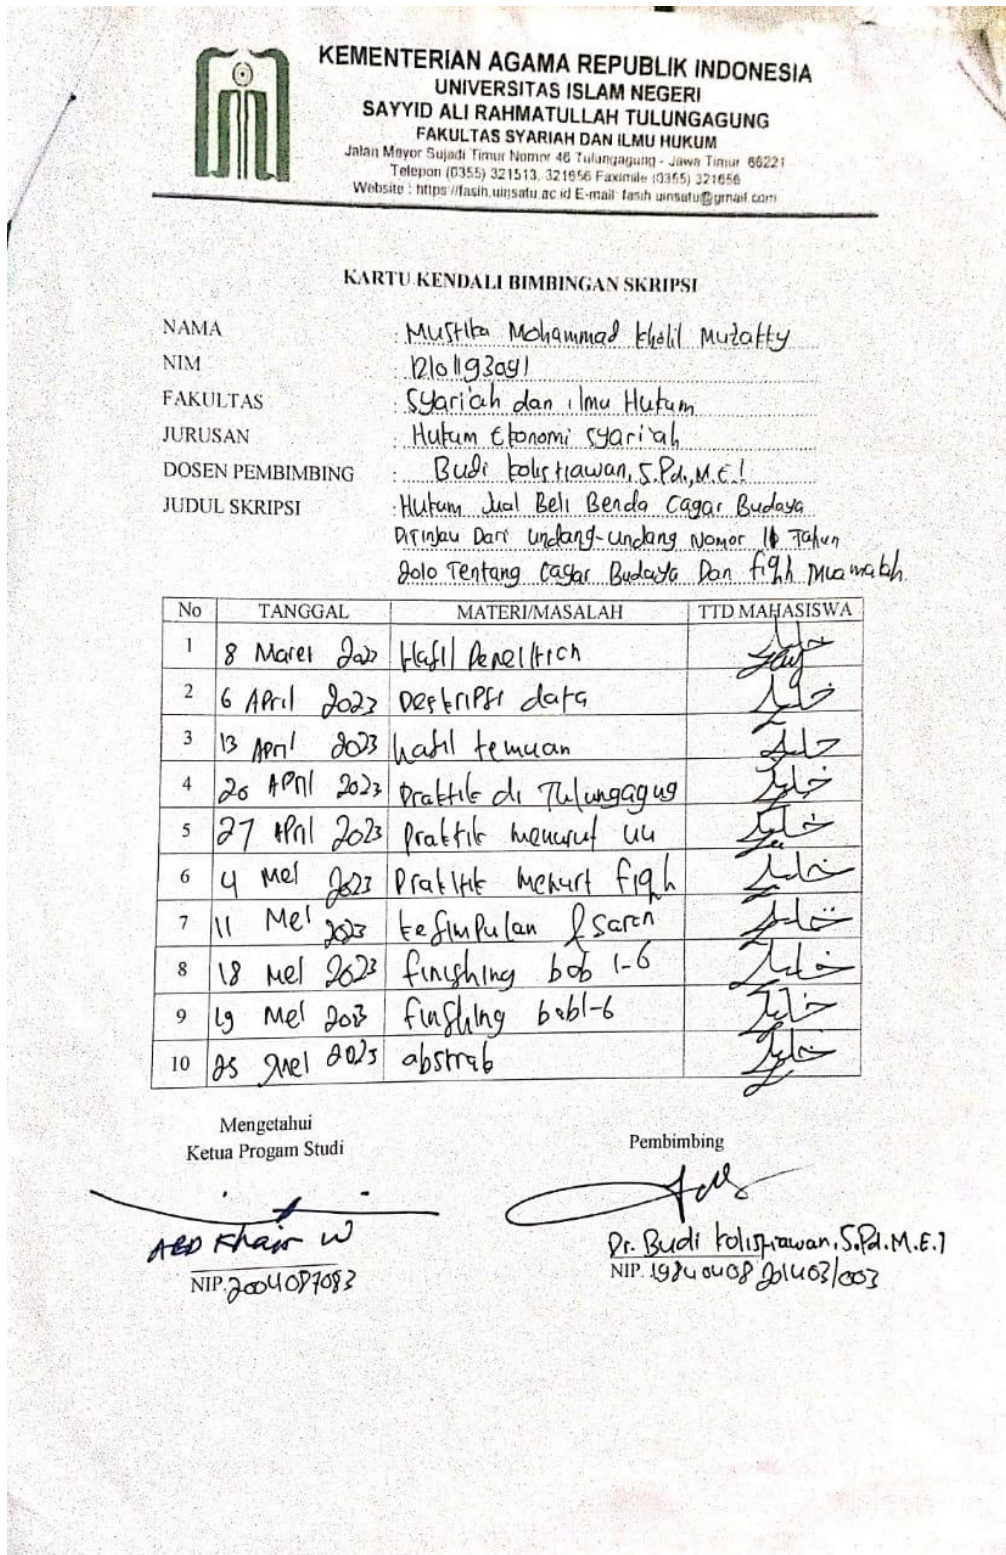 KEMENTERIAN AGAMA REPUBLIK INDONESIA
UNIVERSITAS ISLAM NEGERI
SAYYID ALI RAHMATULLAH TULUNGAGUNG
FAKULTAS SYARIAH DAN ILMU HUKUM
Jalan Mayor Sujadi Timur Nomor 46 Tulungagung - Jawa Timur 66221
Telepon (0355) 321513, 321656 Faximile (0355) 321656
Website : https://fasih.uinsatu.ac.id E-mail: fasih.uinsatu@gmail.com
KARTU KENDALI BIMBINGAN SKRIPSI
NAMA : Mustika Mohammad Kholil Muzakky
NIM : 12101193091
FAKULTAS : Syari'ah dan ilmu Hukum
JURUSAN : Hukum Ekonomi Syari'ah
DOSEN PEMBIMBING : Budi Kolistiawan, S.Pd., M.E.I
JUDUL SKRIPSI : Hukum Jual Beli Benda Cagar Budaya
Ditinjau Dari Undang-Undang Nomor 11 Tahun
2010 Tentang Cagar Budaya Dan fiqh Muamalah
No TANGGAL MATERI/MASALAH TTD MAHASISWA
1 8 Maret Hasil Penelitian
2 6 April 2023 Deskripsi data
3 13 April 2023 hasil temuan
4 20 April 2023 Praktik di Tulungagug
5 27 April 2023 Praktik menurut uu
6 4 Mei 2023 Praktik menurt fiqh
7 11 Mei 2023 kesimpulan & saran
8 18 Mei 2023 finishing bab 1-6
9 19 Mei 2023 finshing bab 1-6
10 25 Mei 2023 abstrak
Mengetahui
Ketua Progam Studi
Pembimbing
Khair W
Dr. Budi Kolistiawan, S.Pd. M.E.I
NIP. 2004087083
NIP. 19840408 201403 1 003